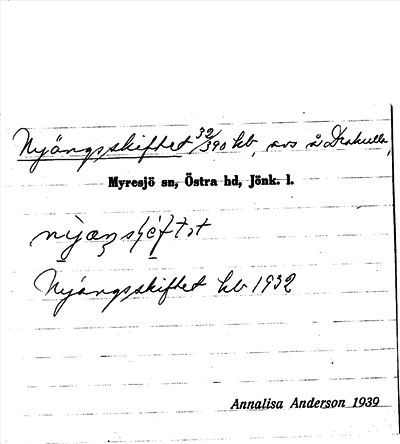 Nyängsskiftet 32/390 kb, avs å Drakulla,
Myresjö sn, Östra hd, Jönk. l.
Nyängsskiftet kb 1932
Annalisa Anderson 1939